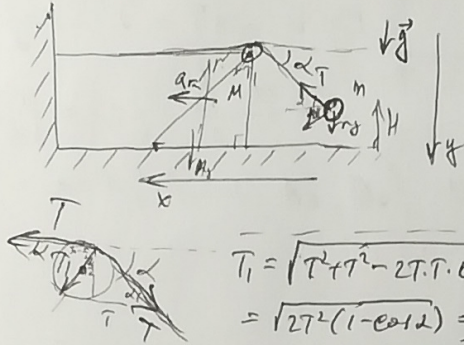 g
α
T
m
a
M
mg
H
Mg
y
x
T
α
α
T₁
α
T
T
T₁ = √T²+T²-2T.T.
= √2T²(1-cosα) =